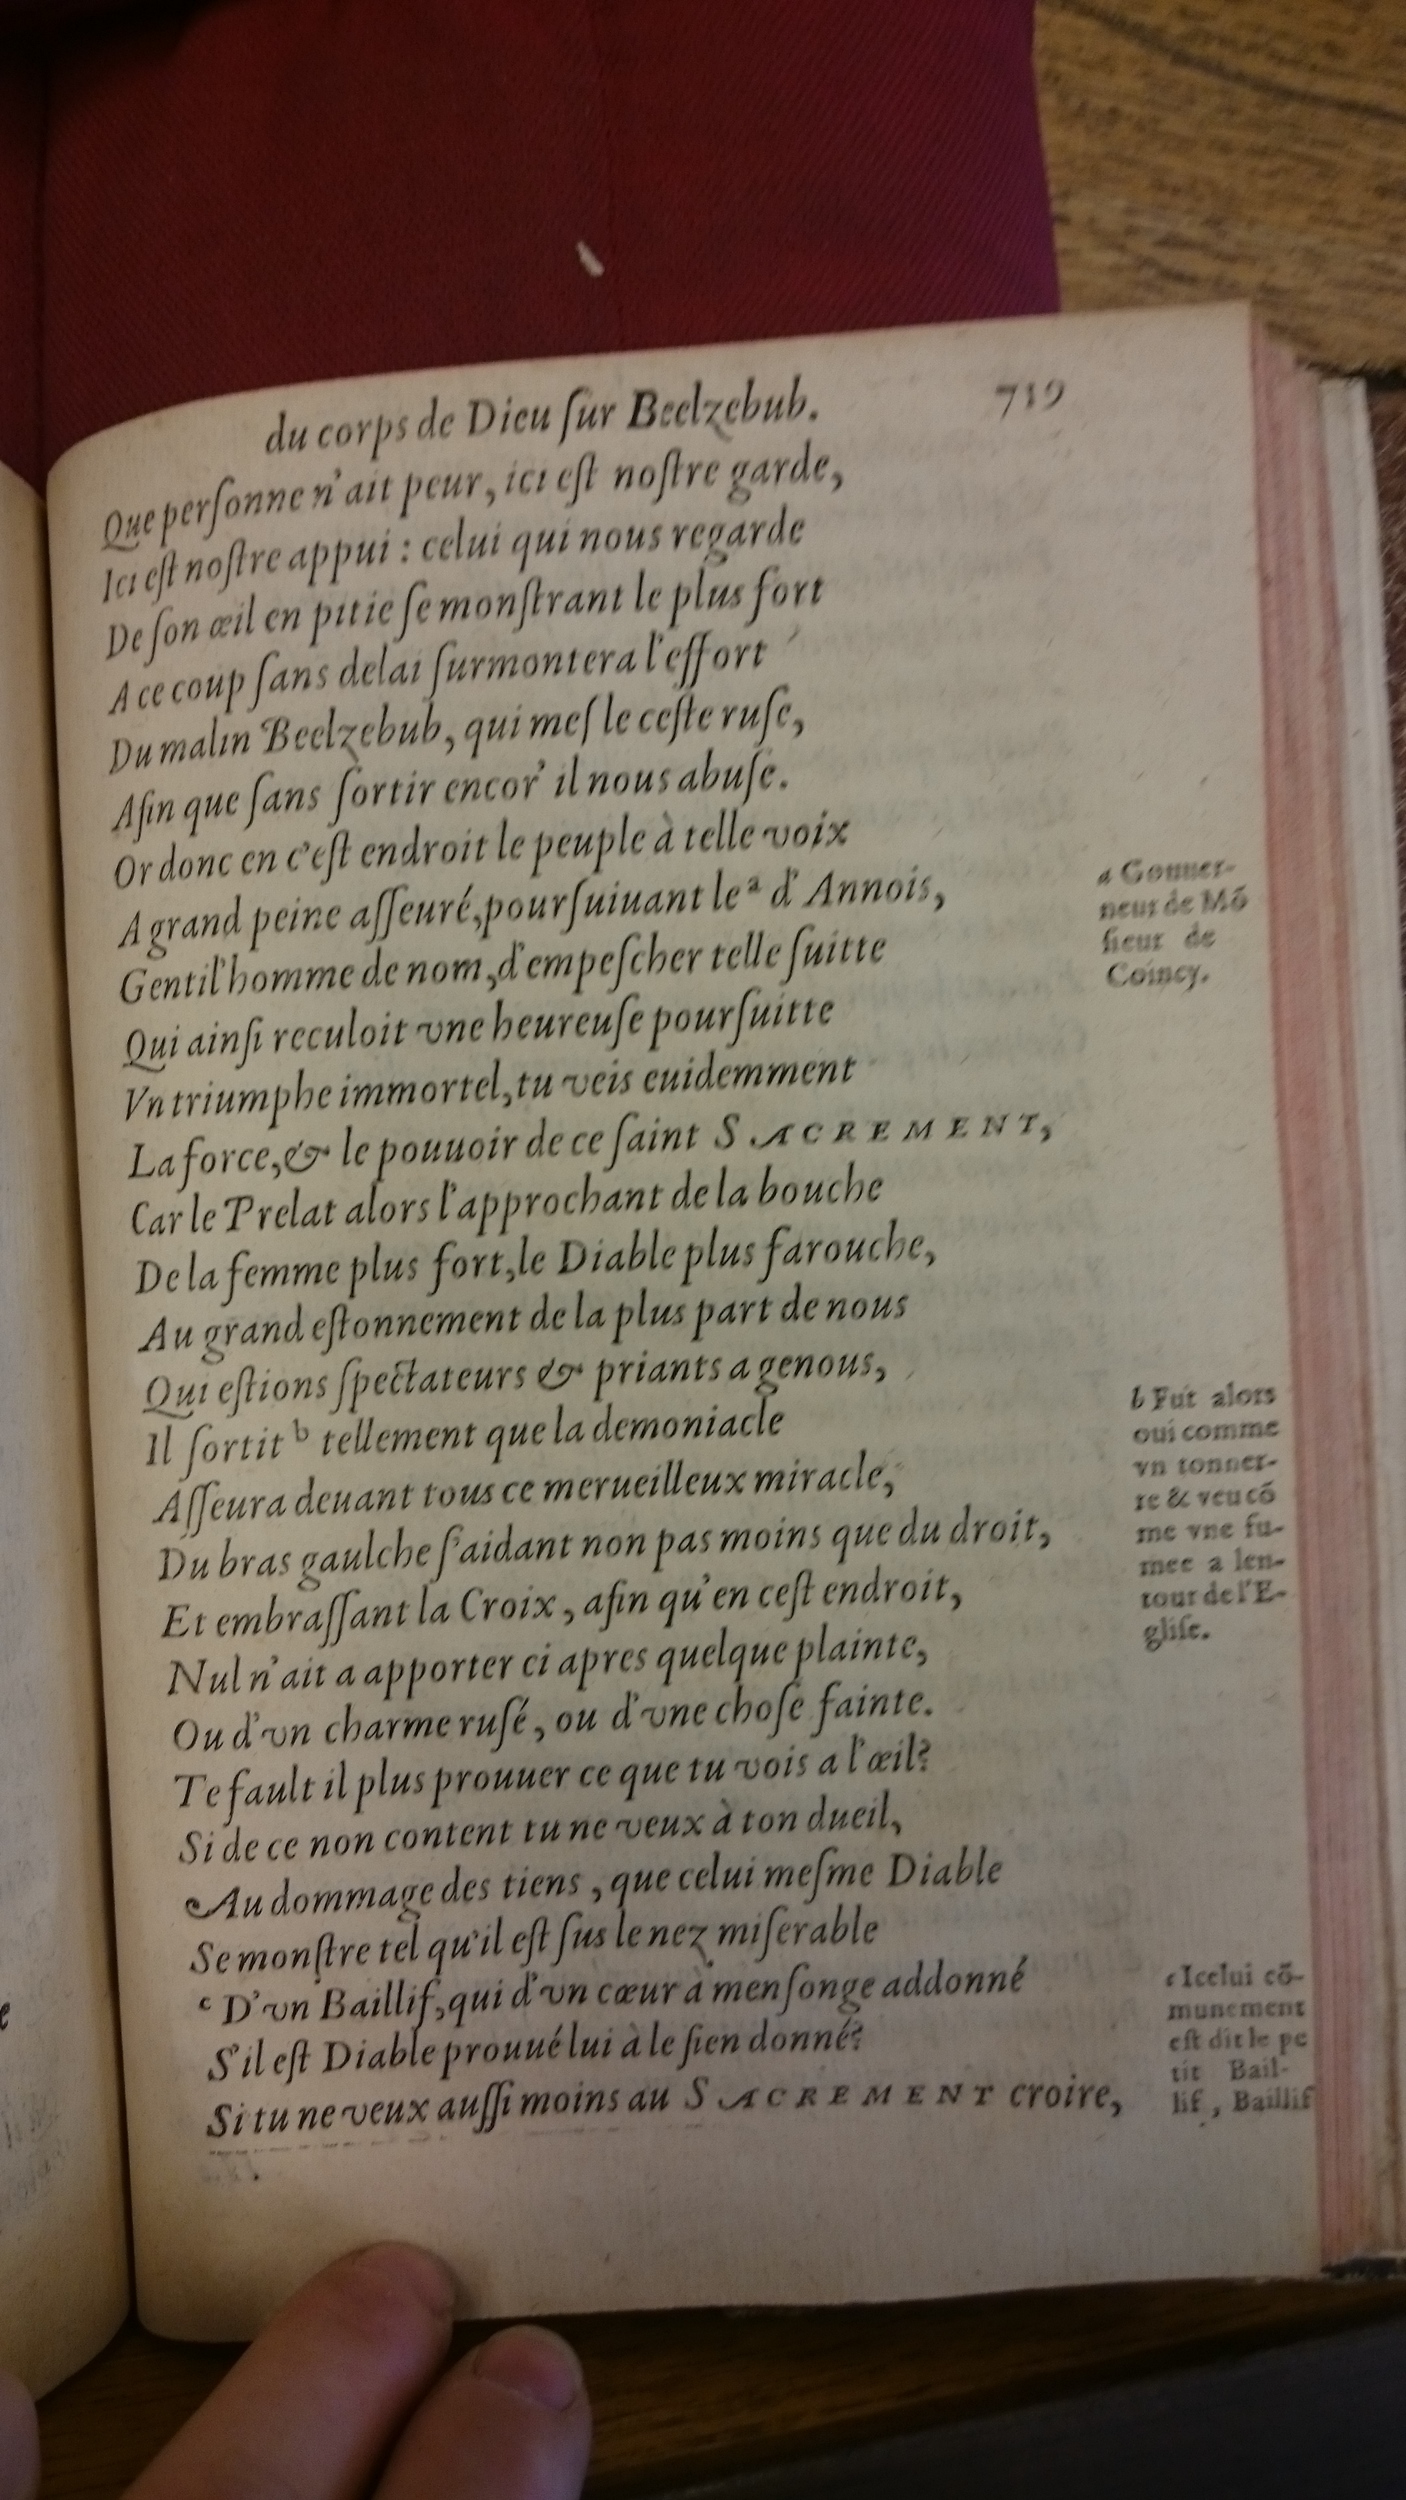 du corps de Dieu ſur Beelzebub. 719
Que perſonne n'ait peur, ici eſt noſtre garde,
Ici eſt noſtre appui : celui qui nous regarde
De ſon œil en pitie ſe monſtrant le plus fort
A ce coup ſans delai ſurmontera l'effort
Du malin Beelzebub, qui meſle ceſte ruſe,
Afin que ſans ſortir encor' il nous abuſe.
Or donc en c'eſt endroit le peuple à telle voix
A grand peine aſſeuré, pourſuiuant le a d'Annois,
Gentil'homme de nom, d'empeſcher telle ſuitte
Qui ainſi reculoit vne heureuſe pourſuitte
Vn triumphe immortel, tu veis euidemment
La force, & le pouuoir de ce ſaint SACREMENT,
Car le Prelat alors l'approchant de la bouche
De la femme plus fort, le Diable plus farouche,
Au grand eſtonnement de la plus part de nous
Qui eſtions ſpectateurs & priants a genous,
Il ſortit b tellement que la demoniacle
Aſſeura deuant tous ce merueilleux miracle,
Du bras gaulche ſ'aidant non pas moins que du droit,
Et embraſſant la Croix, afin qu'en ceſt endroit,
Nul n'ait a apporter ci apres quelque plainte,
Ou d'vn charme ruſé, ou d'vne choſe fainte.
Te fault il plus prouuer ce que tu vois a l'œil?
Si de ce non content tu ne veux à ton dueil,
Au dommage des tiens, que celui meſme Diable
Se monſtre tel qu'il eſt ſus le nez miſerable
c D'vn Baillif, qui d'vn cœur à menſonge addonné
S'il eſt Diable prouué lui à le ſien donné?
Si tu ne veux auſſi moins au SACREMENT croire,
a Gouuer-
neur de Mõ
ſieur de
Coincy.
b Fut alors
oui comme
vn tonner-
re & veu cõ
me vne fu-
mee a len-
tour de l'E-
gliſe.
c Icelui cõ-
munement
eſt dit le pe
tit Bail-
lif, Baillif